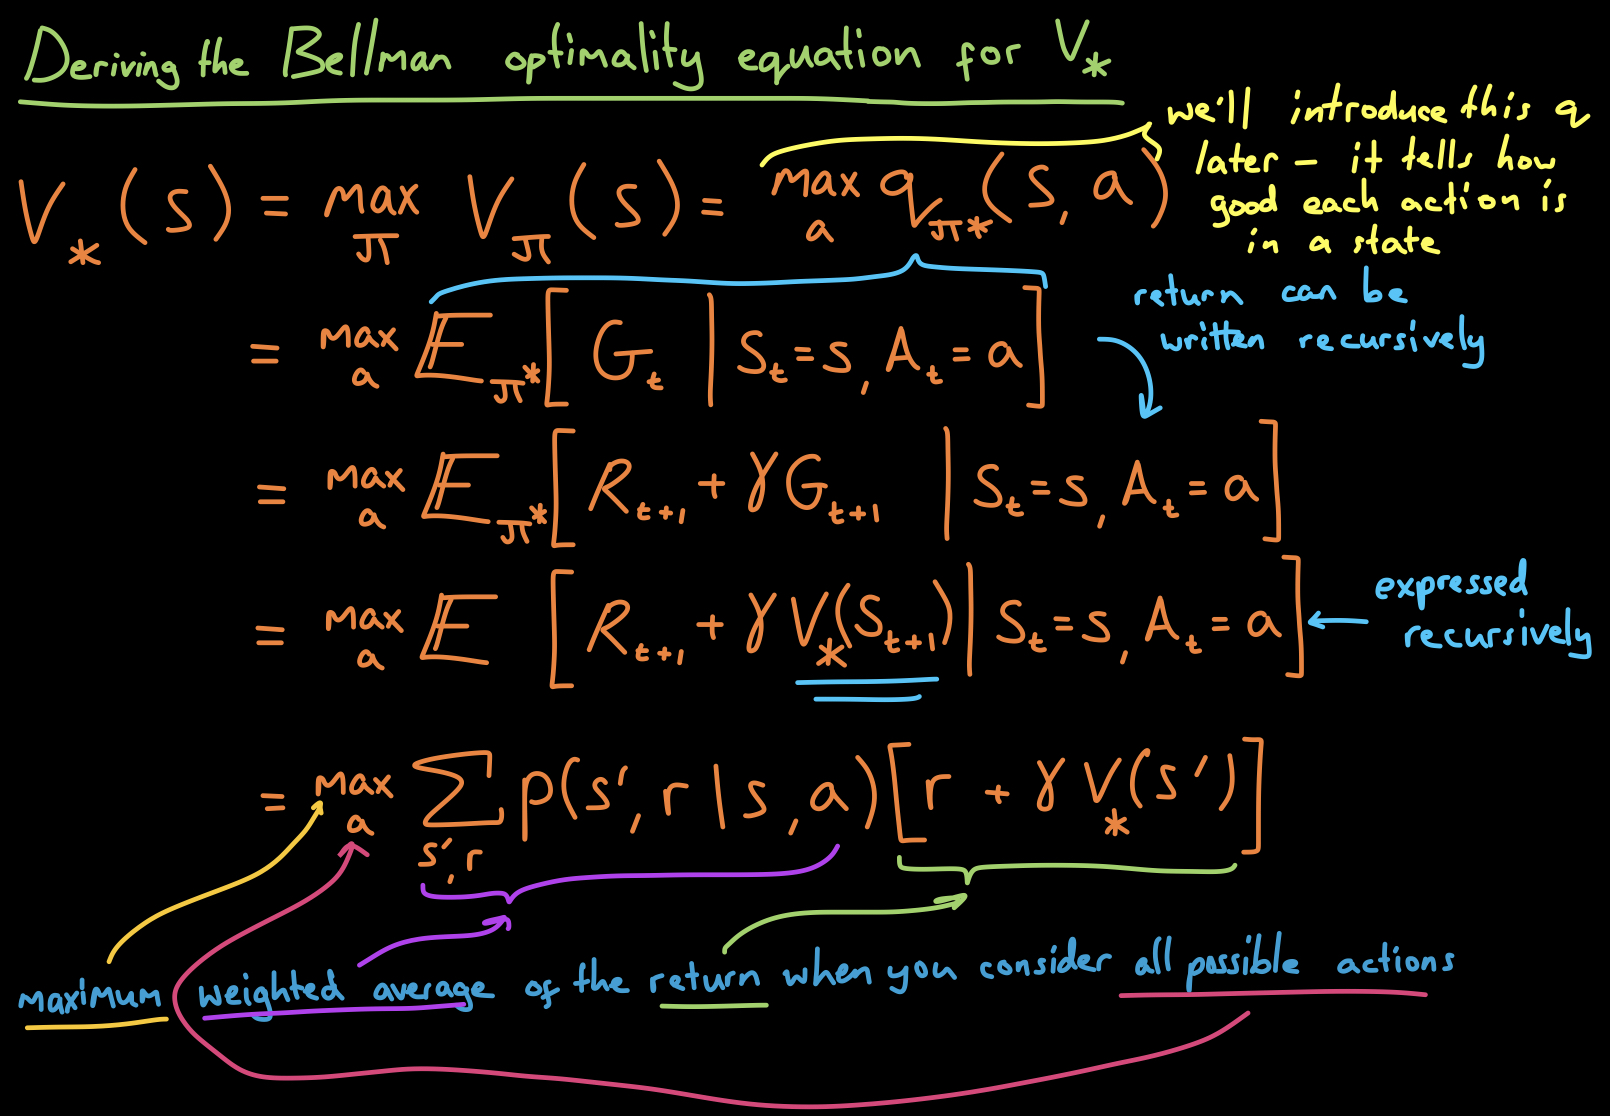 Deriving the Bellman optimality equation for V_*
we'll introduce this q
later – it tells how
good each action is
in a state
V_*(s) = max_π V_π(s) = max_a q_π*(s, a)
= max_a E_π*[G_t | S_t = s, A_t = a]
return can be
written recursively
= max_a E_π*[R_t+1 + γG_t+1 | S_t = s, A_t = a]
= max_a E[R_t+1 + γV_*(S_t+1) | S_t = s, A_t = a]
expressed
recursively
= max_a Σ_s',r p(s', r | s, a)[r + γV_*(s')]
maximum weighted average of the return when you consider all possible actions